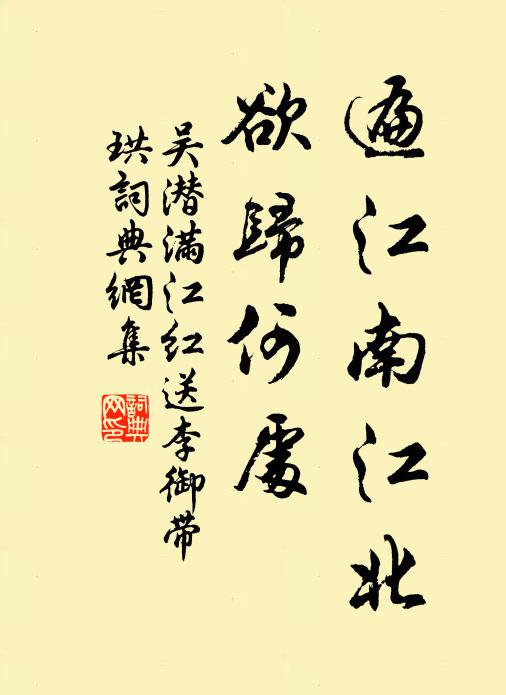 遍江南江北
欲歸何處
吴潜满江红送李御带
珙詞典網集
詞典
网印